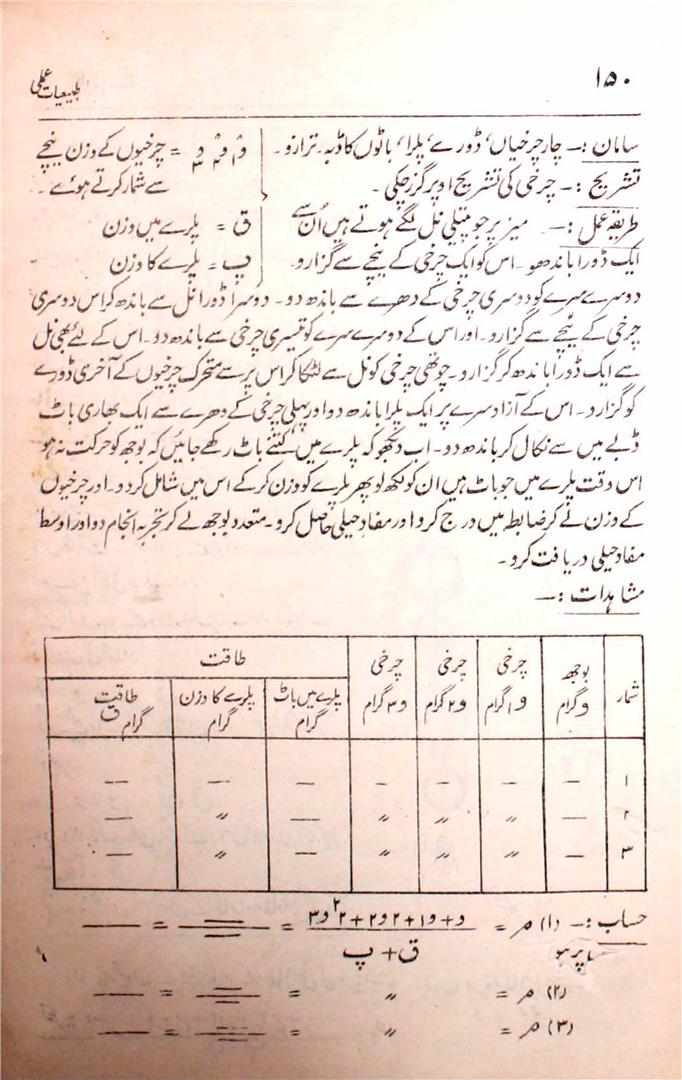 ۱۵۰
طبیعیات عملی
سامان :— چار چرخیاں، ڈورے، پلڑا، باٹوں کا ڈبہ۔ ترازو۔
تشریح :— چرخی کی تشریح اوپر گزر چکی۔
طریقہ عمل :— میز پر جو پیتلی نل لگے ہوتے ہیں اُن سے
ایک ڈورا باندھو۔ اس کو ایک چرخی کے نیچے سے گزارو۔
و۱ و۲ و۳ = چرخیوں کے وزن نیچے
سے شمار کرتے ہوئے۔
ق = پلڑے میں وزن
پ = پلڑے کا وزن
دوسرے سرے کو دوسری چرخی کے دھرے سے باندھ دو۔ دوسرا ڈورا نل سے باندھ کر اس دوسری
چرخی کے نیچے سے گزارو۔ اور اس کے دوسرے سرے کو تیسری چرخی سے باندھ دو۔ اس کے لئے بھی نل
سے ایک ڈورا باندھ کر گزارو۔ چوتھی چرخی کو نل سے لٹکا کر اس پر سے متحرک چرخیوں کے آخری ڈورے
کو گزار دو۔ اس کے آزاد سرے پر ایک پلڑا باندھ دو اور پہلی چرخی کے دھرے سے ایک بھاری باٹ
ڈبے میں سے نکال کر باندھ دو۔ اب دیکھو کہ پلڑے میں کتنے باٹ رکھے جائیں کہ بوجھ کو حرکت نہ ہو
اس وقت پلڑے میں جو باٹ ہیں ان کو لکھ لو پھر پلڑے کو وزن کر کے اس میں شامل کر دو۔ اور چرخیوں
کے وزن لے کر ضابطہ میں درج کرو اور مفاد حیلی حاصل کرو۔ متعدد بوجھ لے کر تجربہ انجام دو اور اوسط
مفاد حیلی دریافت کرو۔
مشاہدات :—
شمار | بوجھ و گرام | چرخی و۱ گرام | چرخی و۲ گرام | چرخی و۳ گرام | طاقت
پلڑے میں باٹ گرام | پلڑے کا وزن گرام | طاقت ق گرام
۱ — - - - — — —
۲ — 〃 〃 〃 — 〃 —
۳ — 〃 〃 〃 — 〃 —
حساب :— (۱) م = و + و۱ + ۲و۲ + ۲²و۳ / ق + پ = — = —
(۲) م = 〃 = — = —
(۳) م = 〃 = — = —